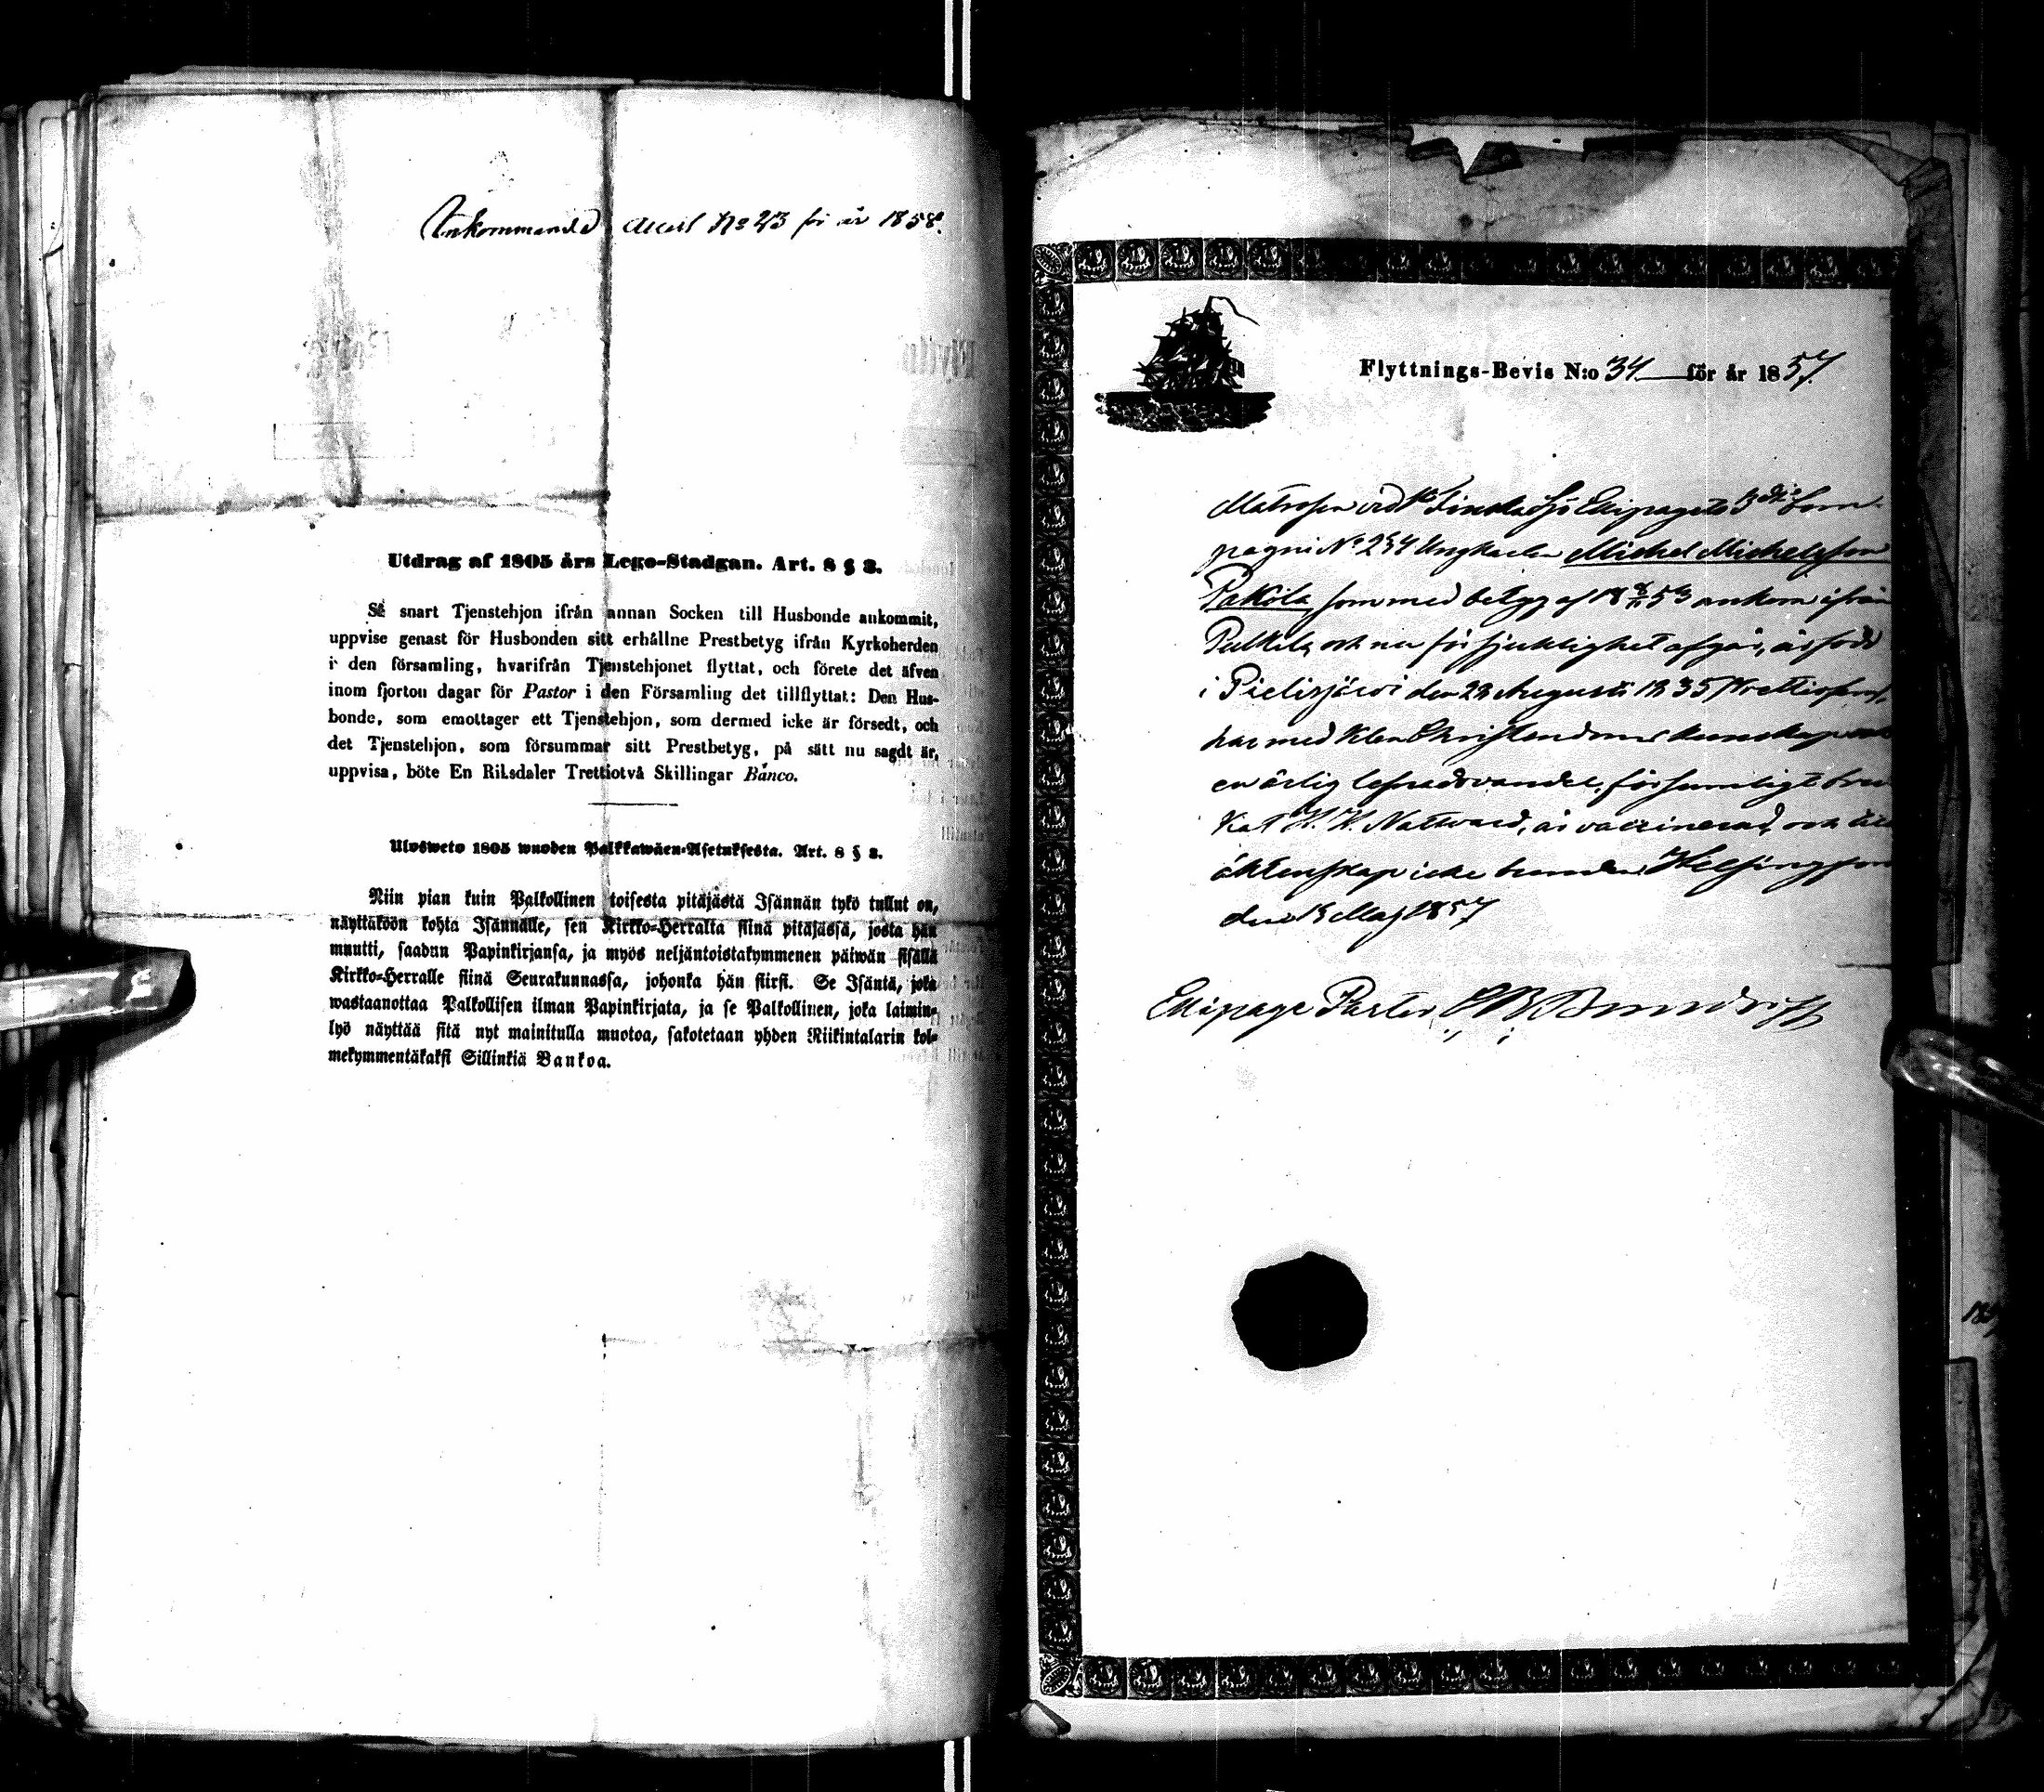 Inkommande Attest No 23 för år 1858.
Utdrag af 1805 års Lego-Stadgan. Art. 8 § 3.
Så snart Tjenstehjon ifrån annan Socken till Husbonde ankommit,
uppvise genast för Husbonden sitt erhållne Prestbetyg ifrån Kyrkoherden
i den församling, hvarifrån Tjenstehjonet flyttat, och förete det äfven
inom fjorton dagar för Pastor i den Församling det tillflyttat: Den Hus-
bonde, som emottager ett Tjenstehjon, som dermed icke är försedt, och
det Tjenstehjon, som försummar sitt Prestbetyg, på sätt nu sagdt är,
uppvisa, böte En Riksdaler Trettiotvå Skillingar Banco.
Ulosweto 1805 wuoden Palkkawäen-Asetuksesta. Art. 8 § 3.
Niin pian kuin Palkollinen toisesta pitäjästä Isännän tykö tullut on,
näyttäköön kohta Isännälle, sen Kirkko-Herralta siinä pitäjässä, josta hän
muutti, saadun Papinkirjansa, ja myös neljäntoistakymmenen päiwän sisällä
Kirkko-Herralle siinä Seurakunnassa, johonka hän siirsi. Se Isäntä, joka
wastaanottaa Palkollisen ilman Papinkirjata, ja se Palkollinen, joka laimin-
lyö näyttää sitä nyt mainitulla muotoa, sakotetaan yhden Riikintalarin kol-
mekymmentäkaksi Sillinkiä Bankoa.
Flyttnings-Bevis N:o 34 för år 1857.
Matrosen vid Finska Sjö Ekipagets 3dje Com-
pagni No 234 Ungkarlen Michel Michelsson
Paköla som med betyg af 18 8/11 53 ankom ifrån
Pulkila och nu för sjuklighet afgår, är född
i Pielisjärvi den 22 Augusti 1835 Trettiofem,
har med klen Christendoms kunskap
en ärlig lefnadsvandel, försumligt bru
kat H. H. Nattvard, är vaccinerad, och till
äktenskap icke bunden. Helsingfors
den 13 Maj 1857
Ekipage Pastor